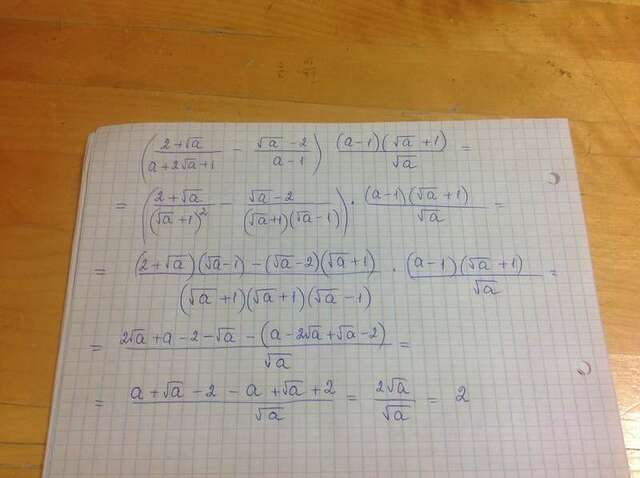 (2+√a / a+2√a+1 − √a−2 / a−1) (a−1)(√a+1) / √a =
= (2+√a / (√a+1)² − √a−2 / (√a+1)(√a−1)) · (a−1)(√a+1) / √a =
= (2+√a)(√a−1)−(√a−2)(√a+1) / (√a+1)(√a+1)(√a−1) · (a−1)(√a+1) / √a =
= 2√a+a−2−√a−(a−2√a+√a−2) / √a =
= a+√a−2−a+√a+2 / √a = 2√a / √a = 2